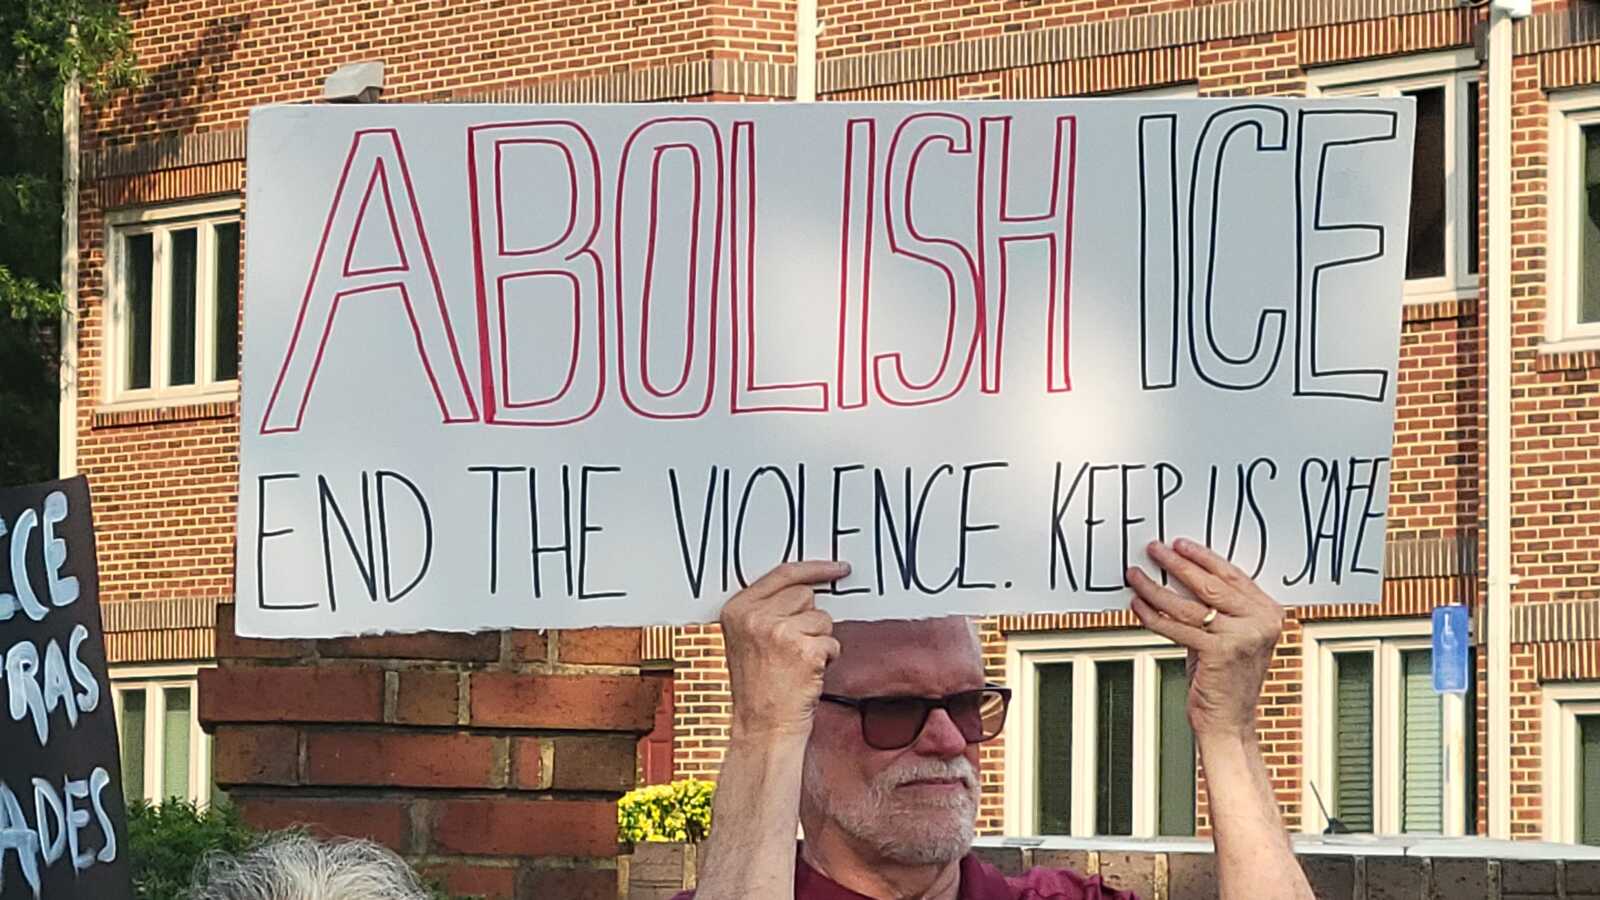 ABOLISH ICE
END THE VIOLENCE. KEEP US SAFE
ICE
TRAS
ADES